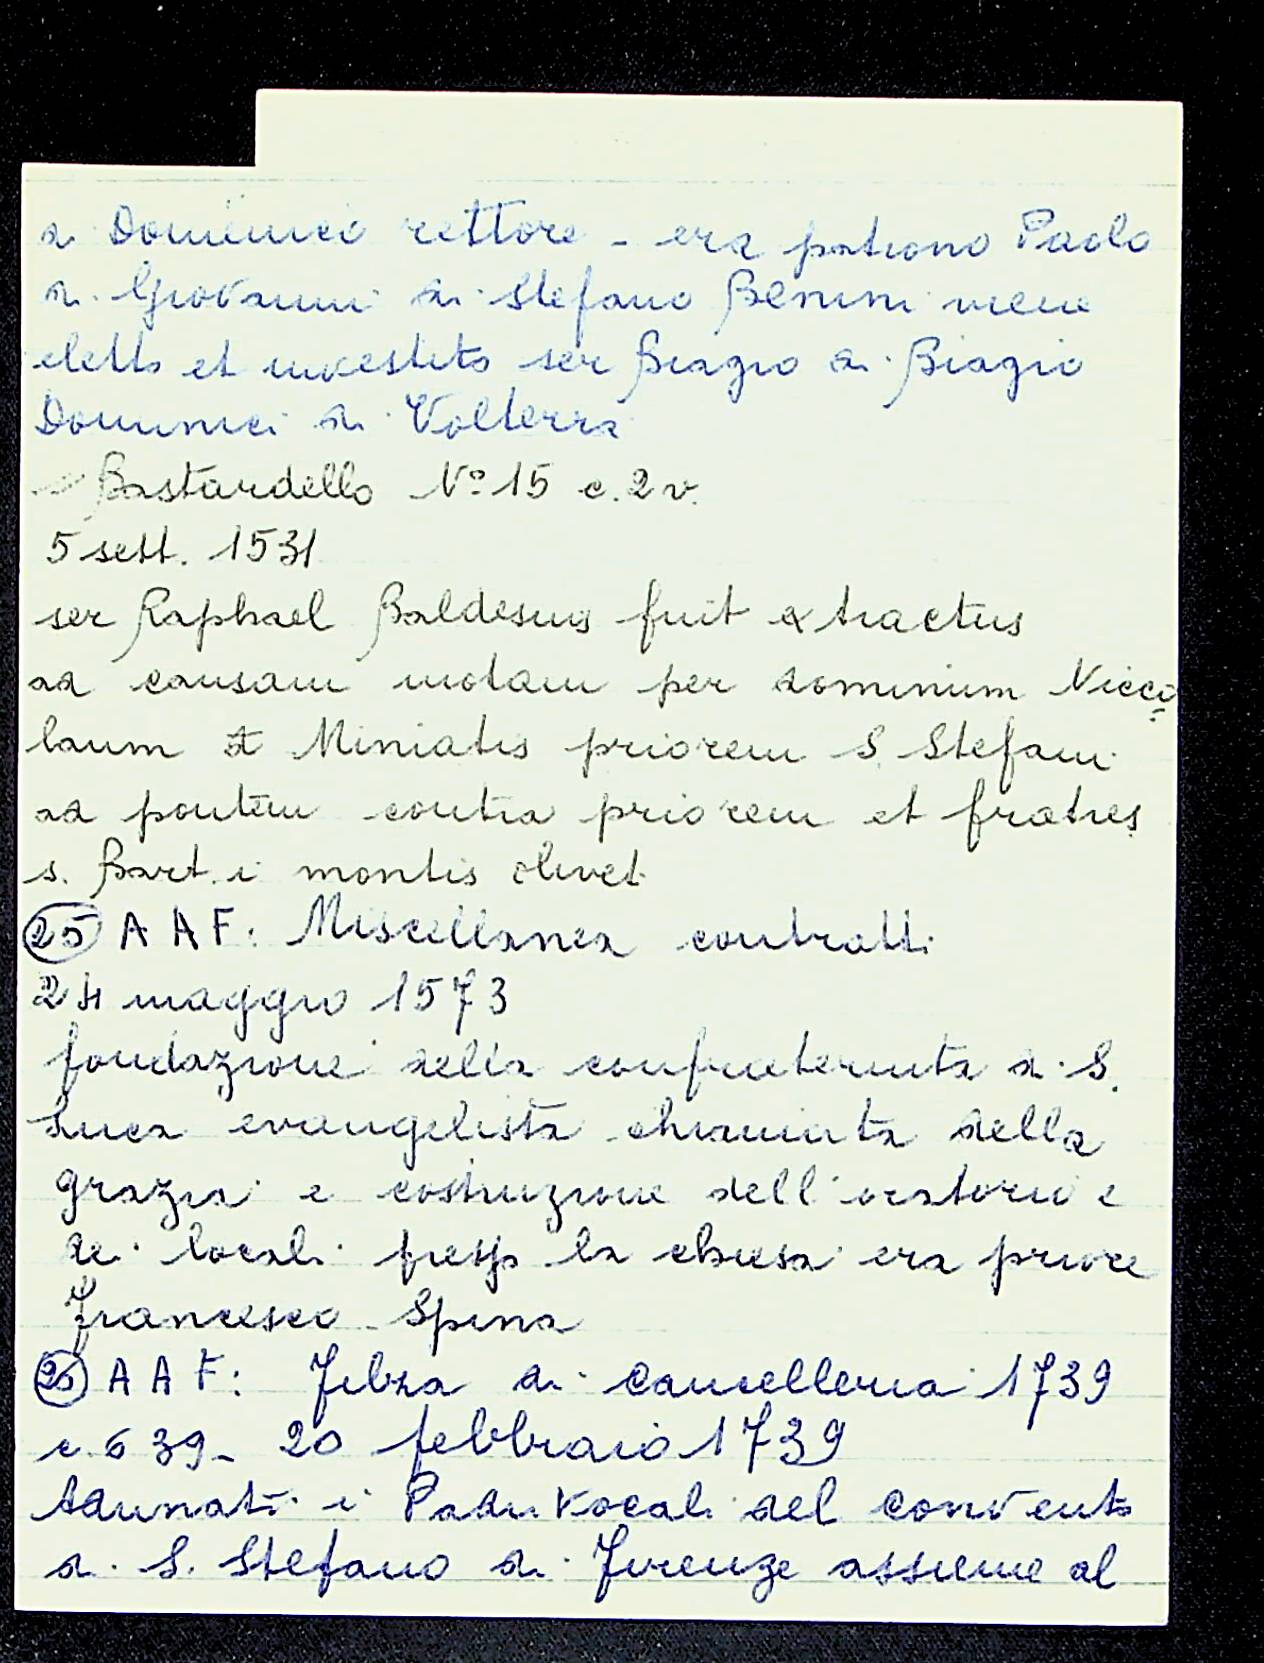 di Domenico rettore - era patrono Paolo
di Giovanni di Stefano Benini viene
eletto et investito ser Biagio di Biagio
Dominici di Volterra
- Bastardello N° 15 c. 2 v.
5 sett. 1531
ser Raphael Baldesius fuit extractus
ad causam motam per dominum Nicco
laum Miniatis priorem S. Stefani
ad pontem contra priorem et fratres
s. Bart.i montis oliveti
25 A A F: Miscellanea contratti
24 maggio 1573
fondazione della confraternita di S.
Luca evangelista chiamata della
grazia e costruzione dell'oratorio e
dei locali presso la chiesa era priore
Francesco Spina
26 A A F: Filza di Cancelleria 1739
c. 639 - 20 febbraio 1739
Adunati i Padri Vocali del convento
di S. Stefano di Firenze assieme al